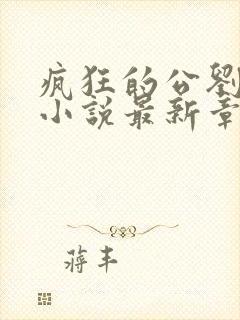 疯狂的公劉
小說最新章
蒋丰